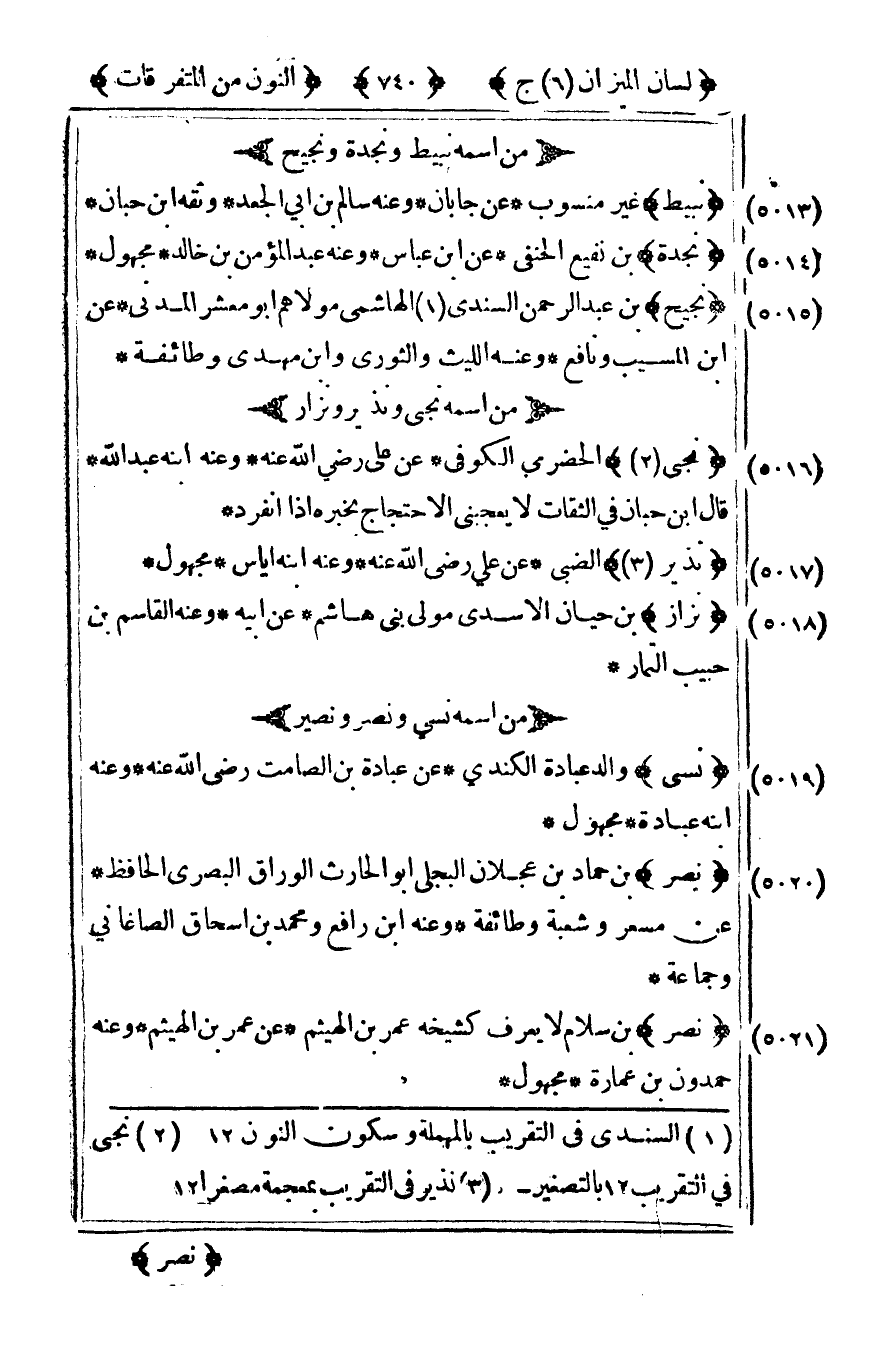 ﴿ لسان الميزان (٦) ج ﴾ ﴿ ٧٤٠ ﴾ ﴿ النون من المتفرقات ﴾
من اسمه نبيط ونجدة ونجيح
(٥٠١٣) ﴿ نبيط ﴾ غير منسوب * عن جابان * وعنه سالم بن ابي الجعد * وثقه ابن حبان *
(٥٠١٤) ﴿ نجدة ﴾ بن نفيع الحنفى * عن ابن عباس * وعنه عبدالمؤمن بن خالد * مجهول *
(٥٠١٥) ﴿ نجيح ﴾ بن عبدالرحمن السندى (١) الهاشمى مولاهم ابو معشر المدنى * عن
ابن المسيب ونافع * وعنه الليث والثورى وابن مهدى وطائفة *
من اسمه نجى ونذير ونزار
(٥٠١٦) ﴿ نجى (٢) ﴾ الحضرمي الكوفى * عن على رضي الله عنه * وعنه ابنه عبدالله *
قال ابن حبان في الثقات لا يعجبنى الاحتجاج بخبره اذا انفرد *
(٥٠١٧) ﴿ نذير (٣) ﴾ الضبى * عن علي رضى الله عنه * وعنه ابنه اياس * مجهول *
(٥٠١٨) ﴿ نزاز ﴾ بن حيان الاسدى مولى بنى هاشم * عن ابيه * وعنه القاسم بن
حبيب التمار *
من اسمه نسي ونصر ونصير
(٥٠١٩) ﴿ نسى ﴾ والد عبادة الكندي * عن عبادة بن الصامت رضى الله عنه * وعنه
ابنه عبادة * مجهول *
(٥٠٢٠) ﴿ نصر ﴾ بن حماد بن عجلان البجلى ابو الحارث الوراق البصرى الحافظ *
عن مسعر و شعبة وطائفة * وعنه ابن رافع ومحمد بن اسحاق الصاغاني
وجماعة *
(٥٠٢١) ﴿ نصر ﴾ بن سلام لا يعرف كشيخه عمر بن الهيثم * عن عمر بن الهيثم * وعنه
حمدون بن عمارة * مجهول *
(١) السندى فى التقريب بالمهملة و سكون النون ١٢ (٢) نجى
في التقريب ١٢ بالتصغير ــ (٣) نذير فى التقريب بمعجمة مصغرا ١٢
﴿ نصر ﴾